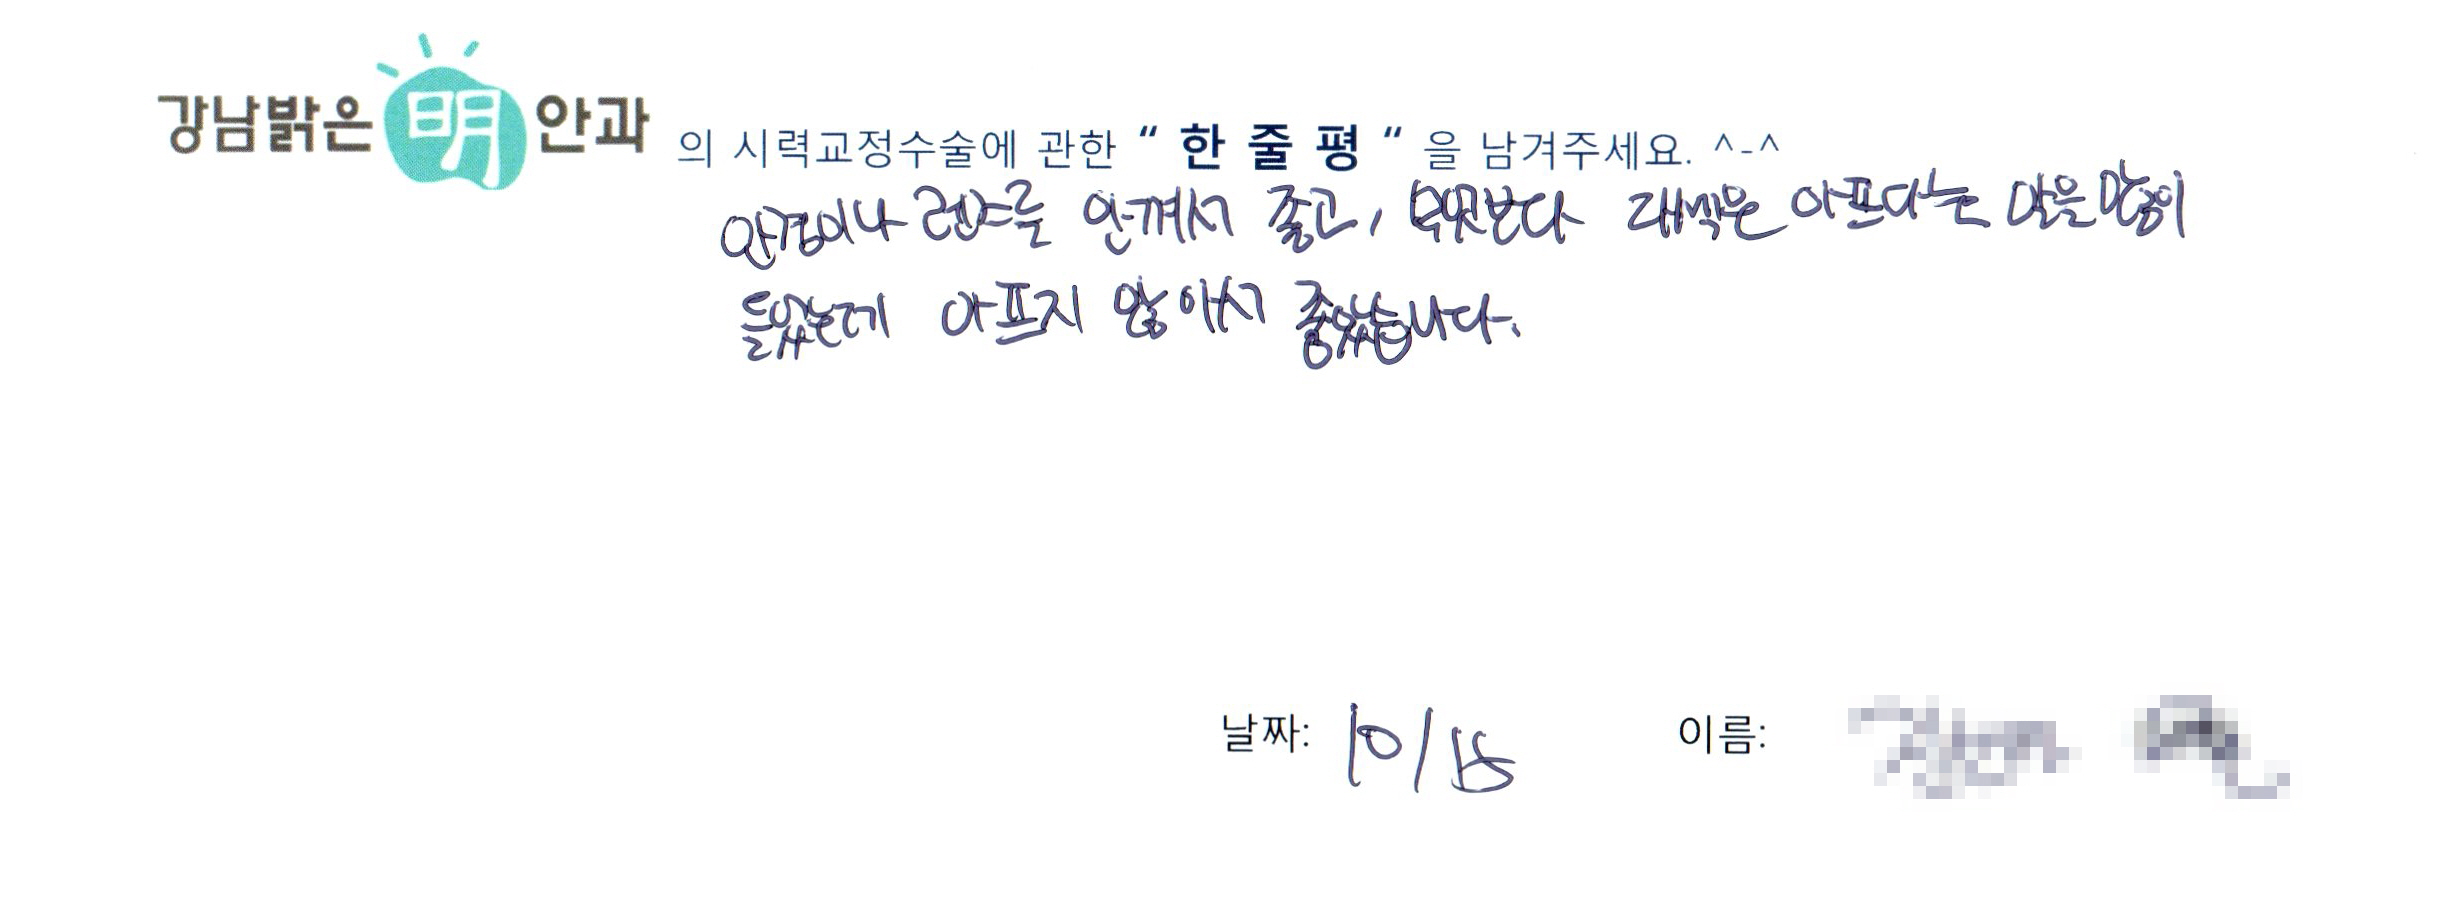 강남밝은 明 안과 의 시력교정수술에 관한 “ 한 줄 평 “ 을 남겨주세요. ^-^
안경이나 렌즈를 안껴서 좋고, 무엇보다 라섹은 아프다는 말을 많이
들었는데 아프지 않아서 좋았습니다.
날짜: 10/15 이름: